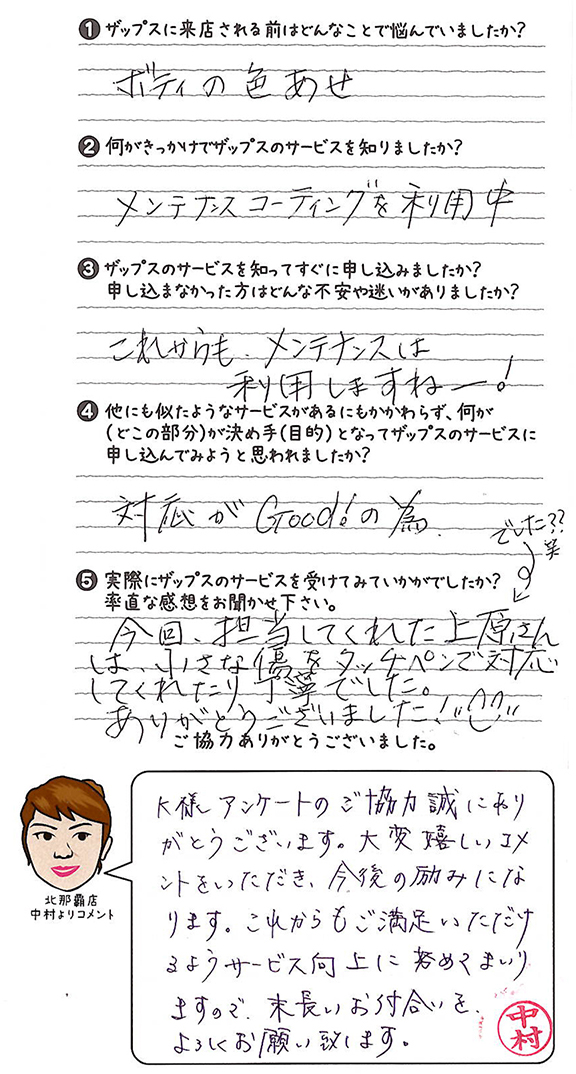 ❶ ザップスに来店される前はどんなことで悩んでいましたか？
ボディの色あせ
❷ 何がきっかけでザップスのサービスを知りましたか？
メンテナンスコーティングを利用中
❸ ザップスのサービスを知ってすぐに申し込みましたか？
申し込まなかった方はどんな不安や迷いがありましたか？
これからも、メンテナンスは
利用しますねー！
❹ 他にも似たようなサービスがあるにもかかわらず、何が
（どこの部分）が決め手（目的）となってザップスのサービスに
申し込んでみようと思われましたか？
対応がGood!の為.
でした??
笑
❺ 実際にザップスのサービスを受けてみていかがでしたか？
率直な感想をお聞かせ下さい。
今回、担当してくれた上原さん
は、小さな傷をタッチペンで対応
してくれたり丁寧でした。
ありがとうございました!
ご協力ありがとうございました。
K様アンケートのご協力誠に有り
がとうございます。大変嬉しいコメ
ントをいただき、今後の励みにな
ります。これからもご満足いただけ
るようサービス向上に努めてまいり
ますので、末長いお付合いを、
よろしくお願い致します。
中村
北那覇店
中村よりコメント